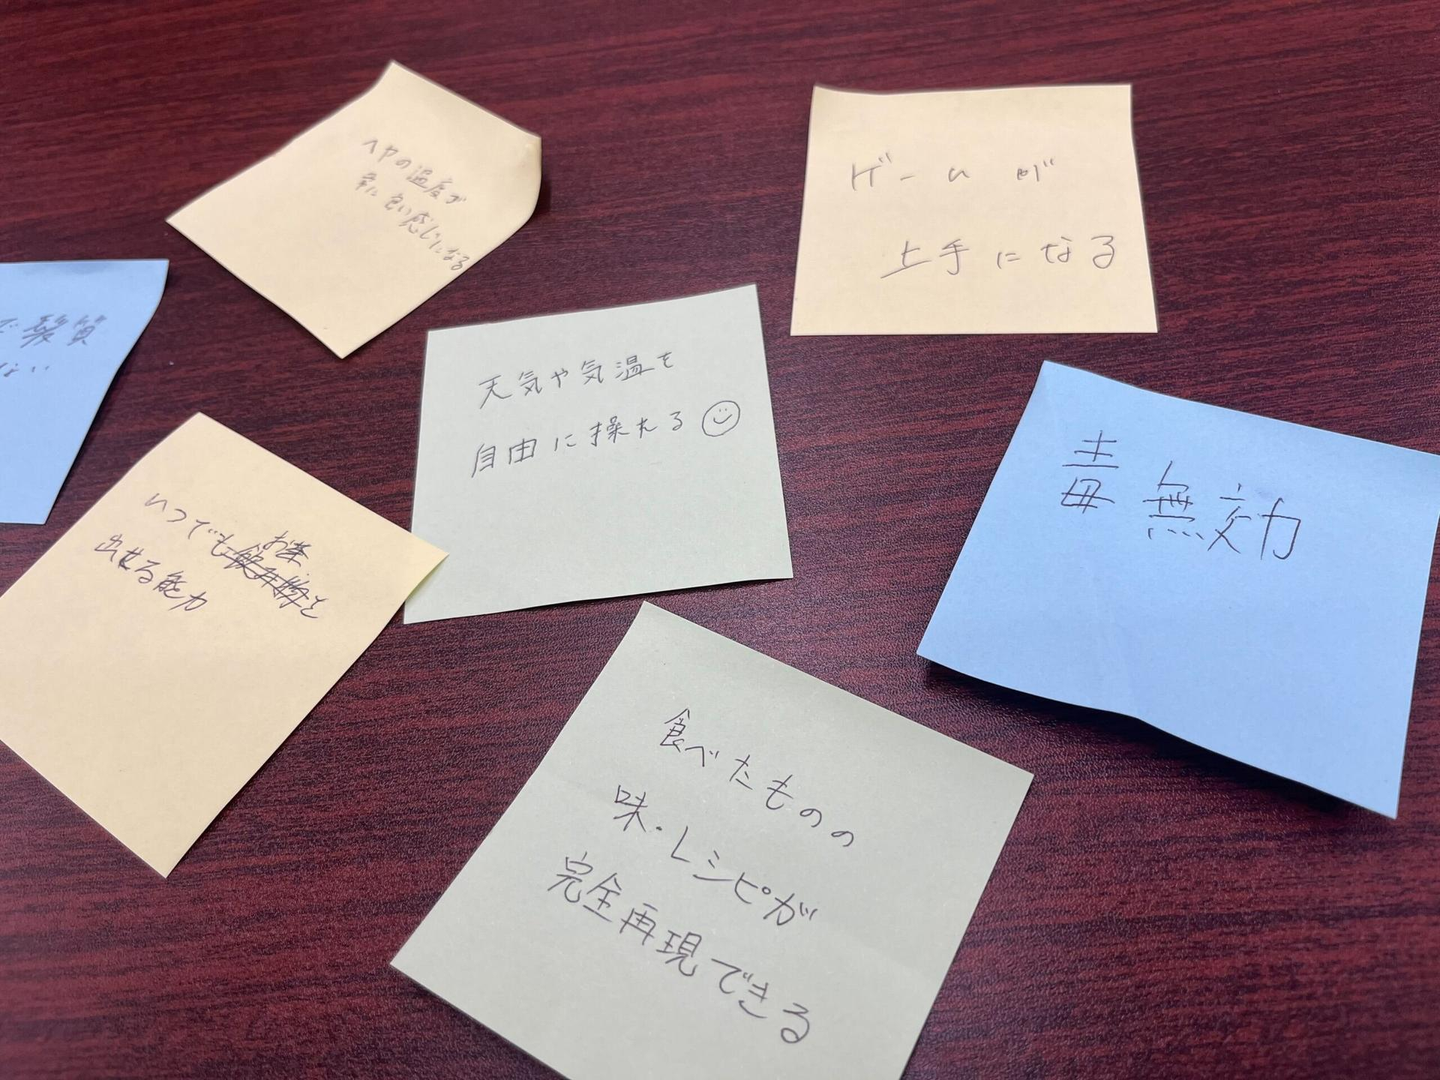 ヘヤの温度が
常に良い感じになる
ゲームが
上手になる
で髪質
ない
天気や気温を
自由に操れる
毒無効
お茶
いつでも飲み物を
出せる能力
食べたものの
味・レシピが
完全再現できる